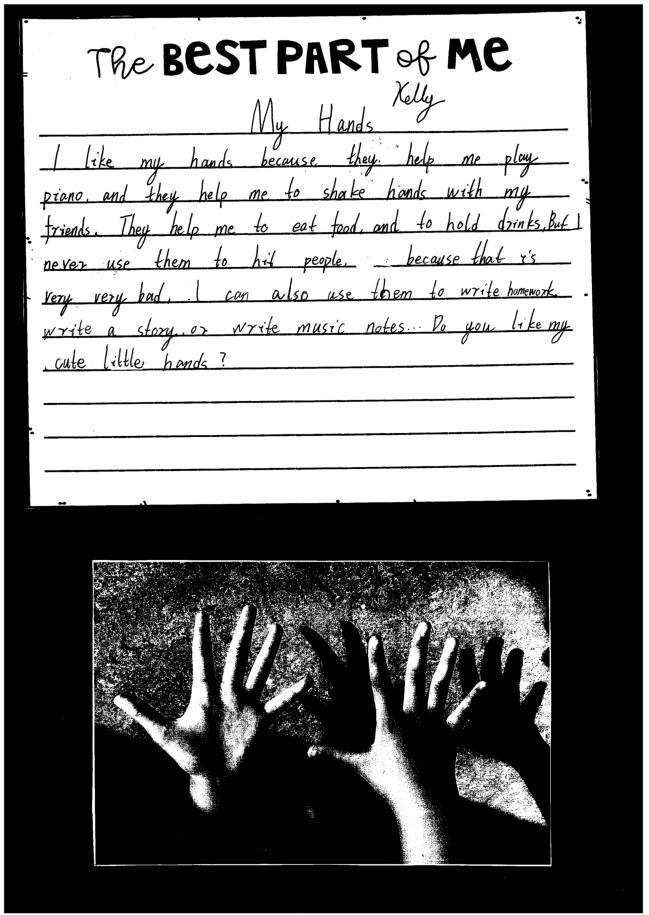 The BEST PART of ME
Kelly
My Hands
I like my hands because they help me play
piano, and they help me to shake hands with my
friends. They help me to eat food, and to hold drinks. But I
never use them to hit people, because that is
very very bad. I can also use them to write homework,
write a story, or write music notes... Do you like my
cute little hands?